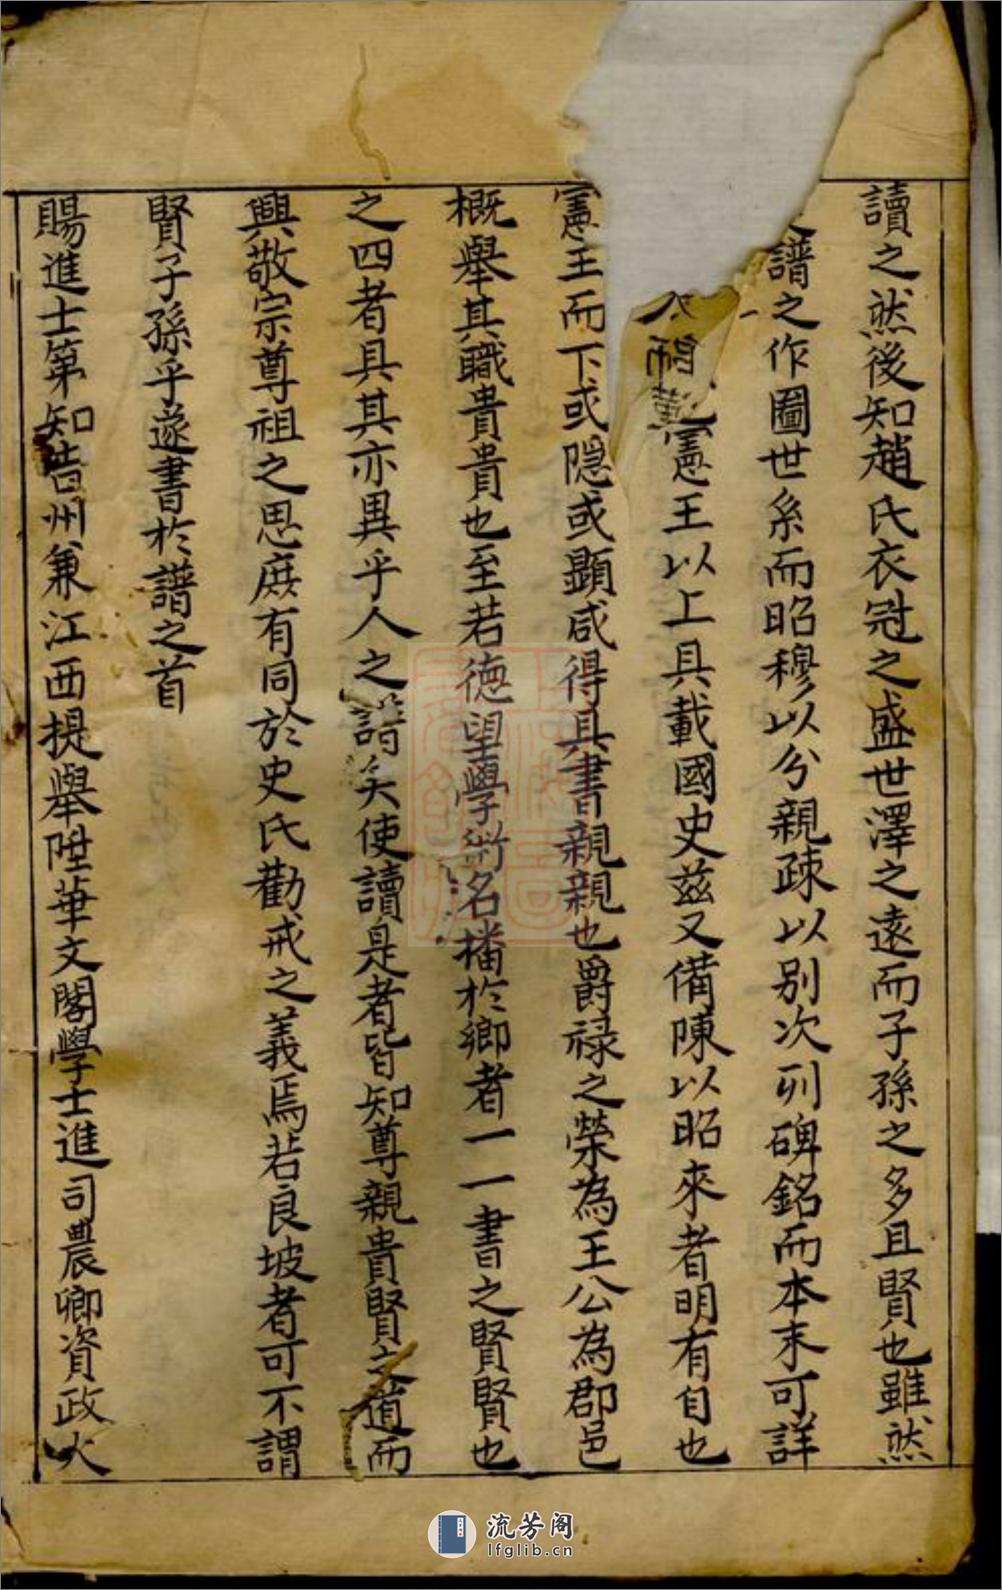 讀之然後知趙氏衣冠之盛世澤之遠而子孫之多且賢也雖然
譜之作圖世系而昭穆以分親疎以別次列碑銘而本末可詳
憲王以上具載國史茲又備陳以昭來者明有自也
憲王而下或隱或顯咸得具書親親也爵祿之榮為王公為郡邑
概舉其職貴貴也至若德望學術名播於鄉者一一書之賢賢也
之四者具其亦異乎人之譜矣使讀是者皆知尊親貴賢之道而
興敬宗尊祖之思庶有同於史氏勸戒之義焉若良坡者可不謂
賢子孫乎遂書於譜之首
賜進士第知吉州兼江西提舉陞華文閣學士進司農卿資政大
流芳阁
lfglib.cn